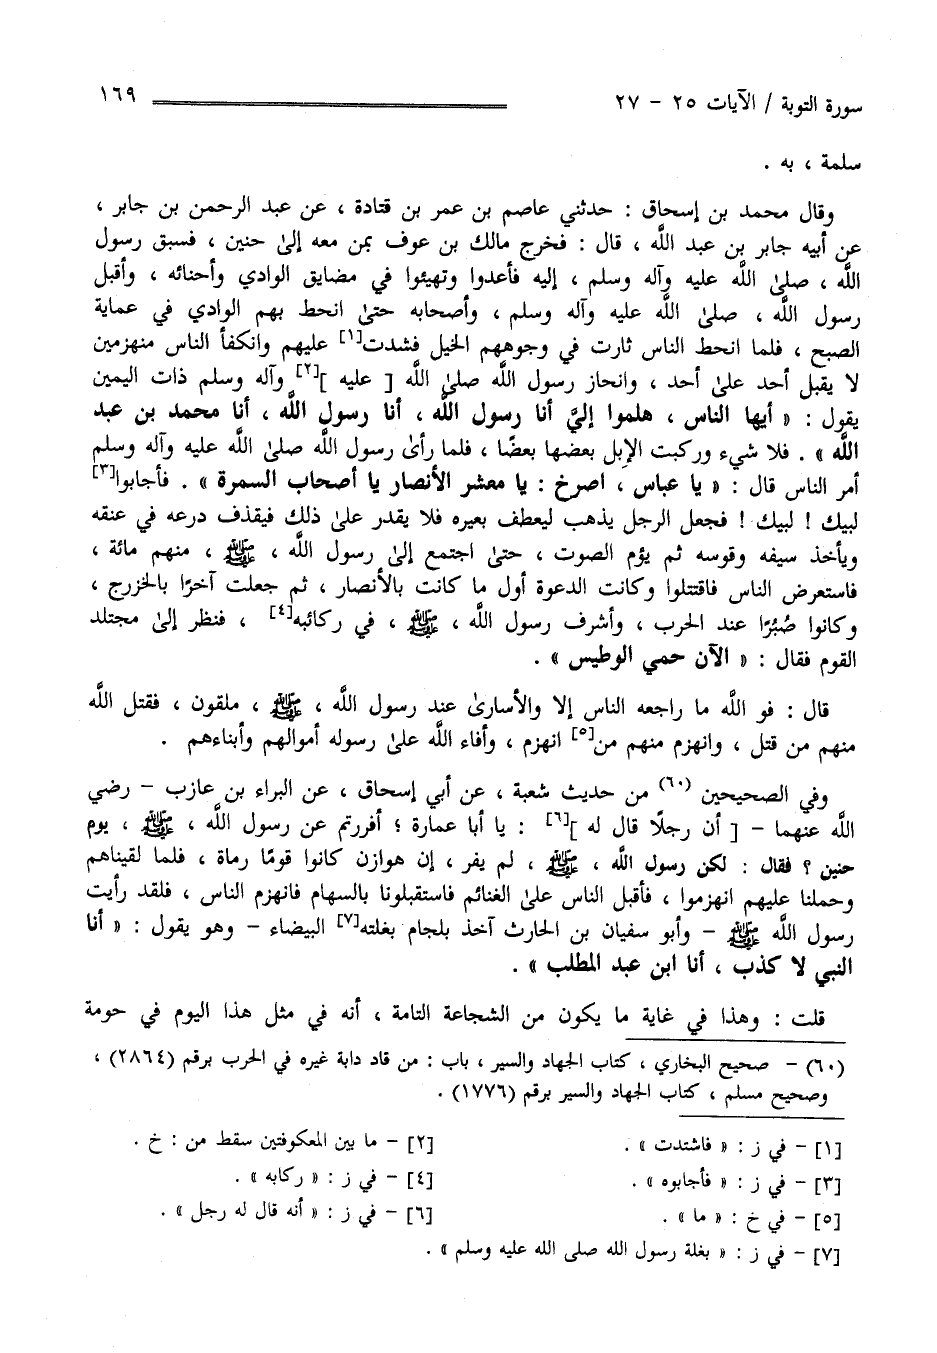 سورة التوبة / الآيات ٢٥ - ٢٧ ١٦٩
سلمة ، به .
وقال محمد بن إسحاق : حدثني عاصم بن عمر بن قتادة ، عن عبد الرحمن بن جابر ،
عن أبيه جابر بن عبد اللَّه ، قال : فخرج مالك بن عوف بمن معه إلىٰ حنين ، فسبق رسول
اللَّه ، صلىٰ اللَّه عليه وآله وسلم ، إليه فأعدوا وتهيئوا في مضايق الوادي وأحنائه ، وأقبل
رسول اللَّه ، صلىٰ اللَّه عليه وآله وسلم ، وأصحابه حتىٰ انحط بهم الوادي في عماية
الصبح ، فلما انحط الناس ثارت في وجوههم الخيل فشدت[١] عليهم وانكفأ الناس منهزمين
لا يقبل أحد علىٰ أحد ، وانحاز رسول اللَّه صلىٰ اللَّه [ عليه ][٢] وآله وسلم ذات اليمين
يقول : « أيها الناس ، هلموا إليَّ أنا رسول اللَّه ، أنا رسول اللَّه ، أنا محمد بن عبد
اللَّه » . فلا شيء وركبت الإبل بعضها بعضًا ، فلما رأىٰ رسول اللَّه صلىٰ اللَّه عليه وآله وسلم
أمر الناس قال : « يا عباس ، اصرخ : يا معشر الأنصار يا أصحاب السمرة » . فأجابوا[٣]
لبيك ! لبيك ! فجعل الرجل يذهب ليعطف بعيره فلا يقدر علىٰ ذلك فيقذف درعه في عنقه
ويأخذ سيفه وقوسه ثم يؤم الصوت ، حتىٰ اجتمع إلىٰ رسول اللَّه ، ﷺ ، منهم مائة ،
فاستعرض الناس فاقتتلوا وكانت الدعوة أول ما كانت بالأنصار ، ثم جعلت آخرًا بالخزرج ،
وكانوا صُبُرًا عند الحرب ، وأشرف رسول اللَّه ، ﷺ ، في ركائبه[٤] ، فنظر إلىٰ مجتلد
القوم فقال : « الآن حمي الوطيس » .
قال : فو اللَّه ما راجعه الناس إلا والأسارىٰ عند رسول اللَّه ، ﷺ ، ملقون ، فقتل اللَّه
منهم من قتل ، وانهزم منهم من[٥] انهزم ، وأفاء اللَّه علىٰ رسوله أموالهم وأبناءهم .
وفي الصحيحين (٦٠) من حديث شعبة ، عن أبي إسحاق ، عن البراء بن عازب - رضي
اللَّه عنهما - [ أن رجلًا قال له ][٦] : يا أبا عمارة ؛ أفررتم عن رسول اللَّه ، ﷺ ، يوم
حنين ؟ فقال : لكن رسول اللَّه ، ﷺ ، لم يفر ، إن هوازن كانوا قومًا رماة ، فلما لقيناهم
وحملنا عليهم انهزموا ، فأقبل الناس علىٰ الغنائم فاستقبلونا بالسهام فانهزم الناس ، فلقد رأيت
رسول اللَّه ﷺ - وأبو سفيان بن الحارث آخذ بلجام بغلته[٧] البيضاء - وهو يقول : « أنا
النبي لا كذب ، أنا ابن عبد المطلب » .
قلت : وهذا في غاية ما يكون من الشجاعة التامة ، أنه في مثل هذا اليوم في حومة
(٦٠) - صحيح البخاري ، كتاب الجهاد والسير ، باب : من قاد دابة غيره في الحرب برقم (٢٨٦٤) ،
وصحيح مسلم ، كتاب الجهاد والسير برقم (١٧٧٦) .
[١] - في ز : « فاشتدت » . [٢] - ما بين المعكوفتين سقط من : خ .
[٣] - في ز : « فأجابوه » . [٤] - في ز : « ركابه » .
[٥] - في خ : « ما » . [٦] - في ز : « أنه قال له رجل » .
[٧] - في ز : « بغلة رسول الله صلى الله عليه وسلم » .